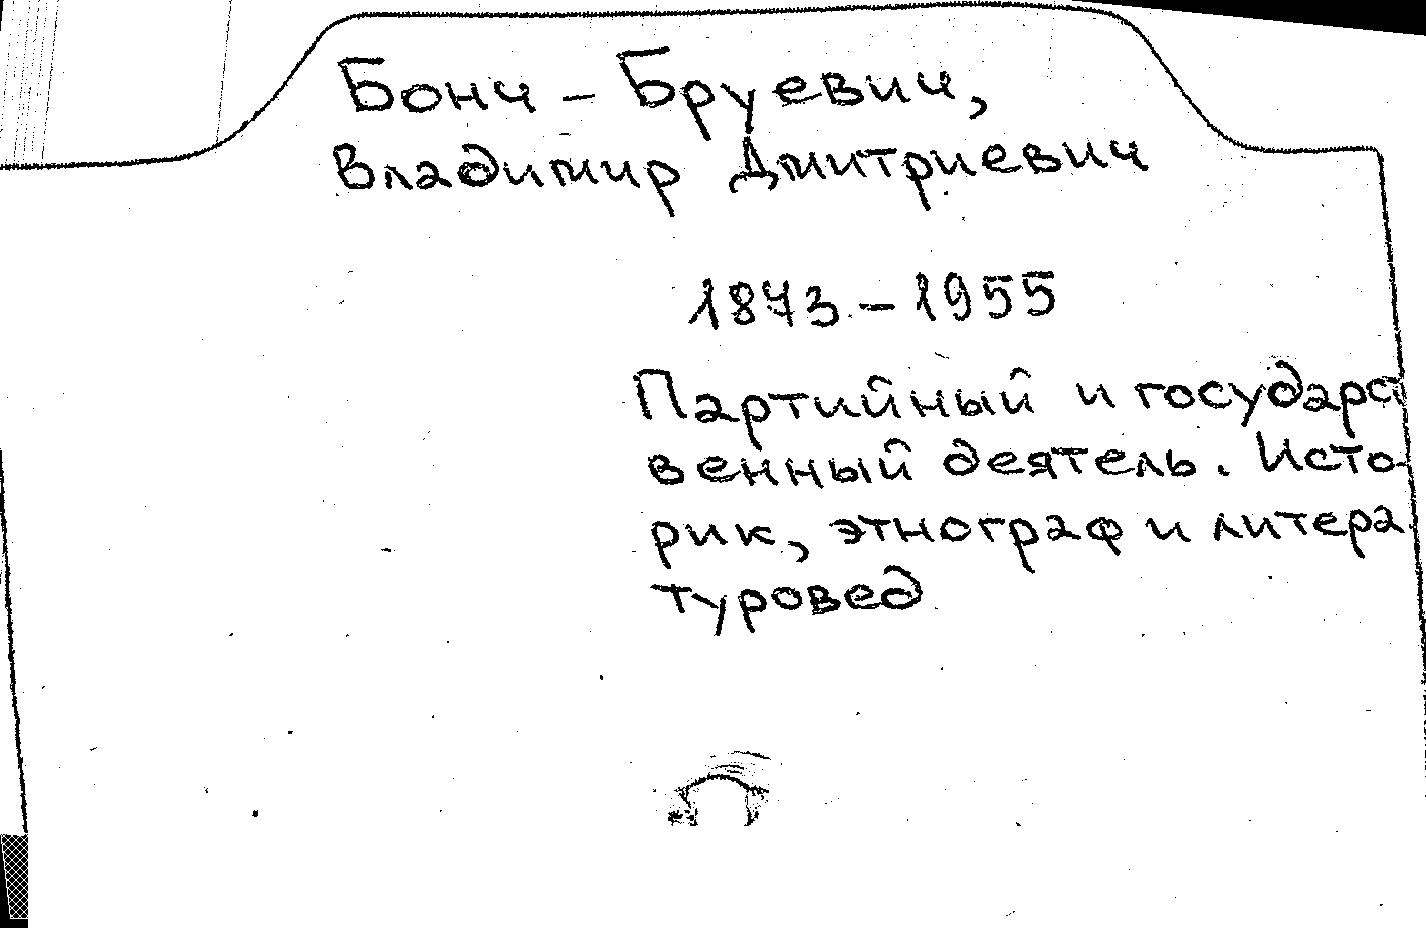 Бонч - Бруевич,
Владимир Дмитриевич
1873 - 1955
Партийный и государст
венный деятель. Исто-
рик, этнограф и литера
туровед